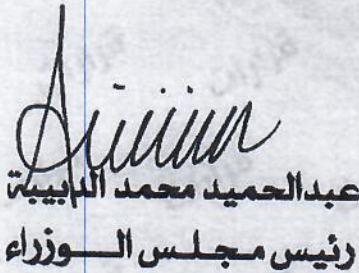 عبدالحميد محمد الدبيبة
رئيس مجلس الـــوزراء